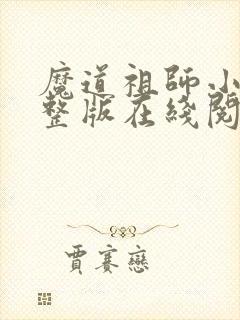 魔道祖師小
整版在綫閱
賈賽戀